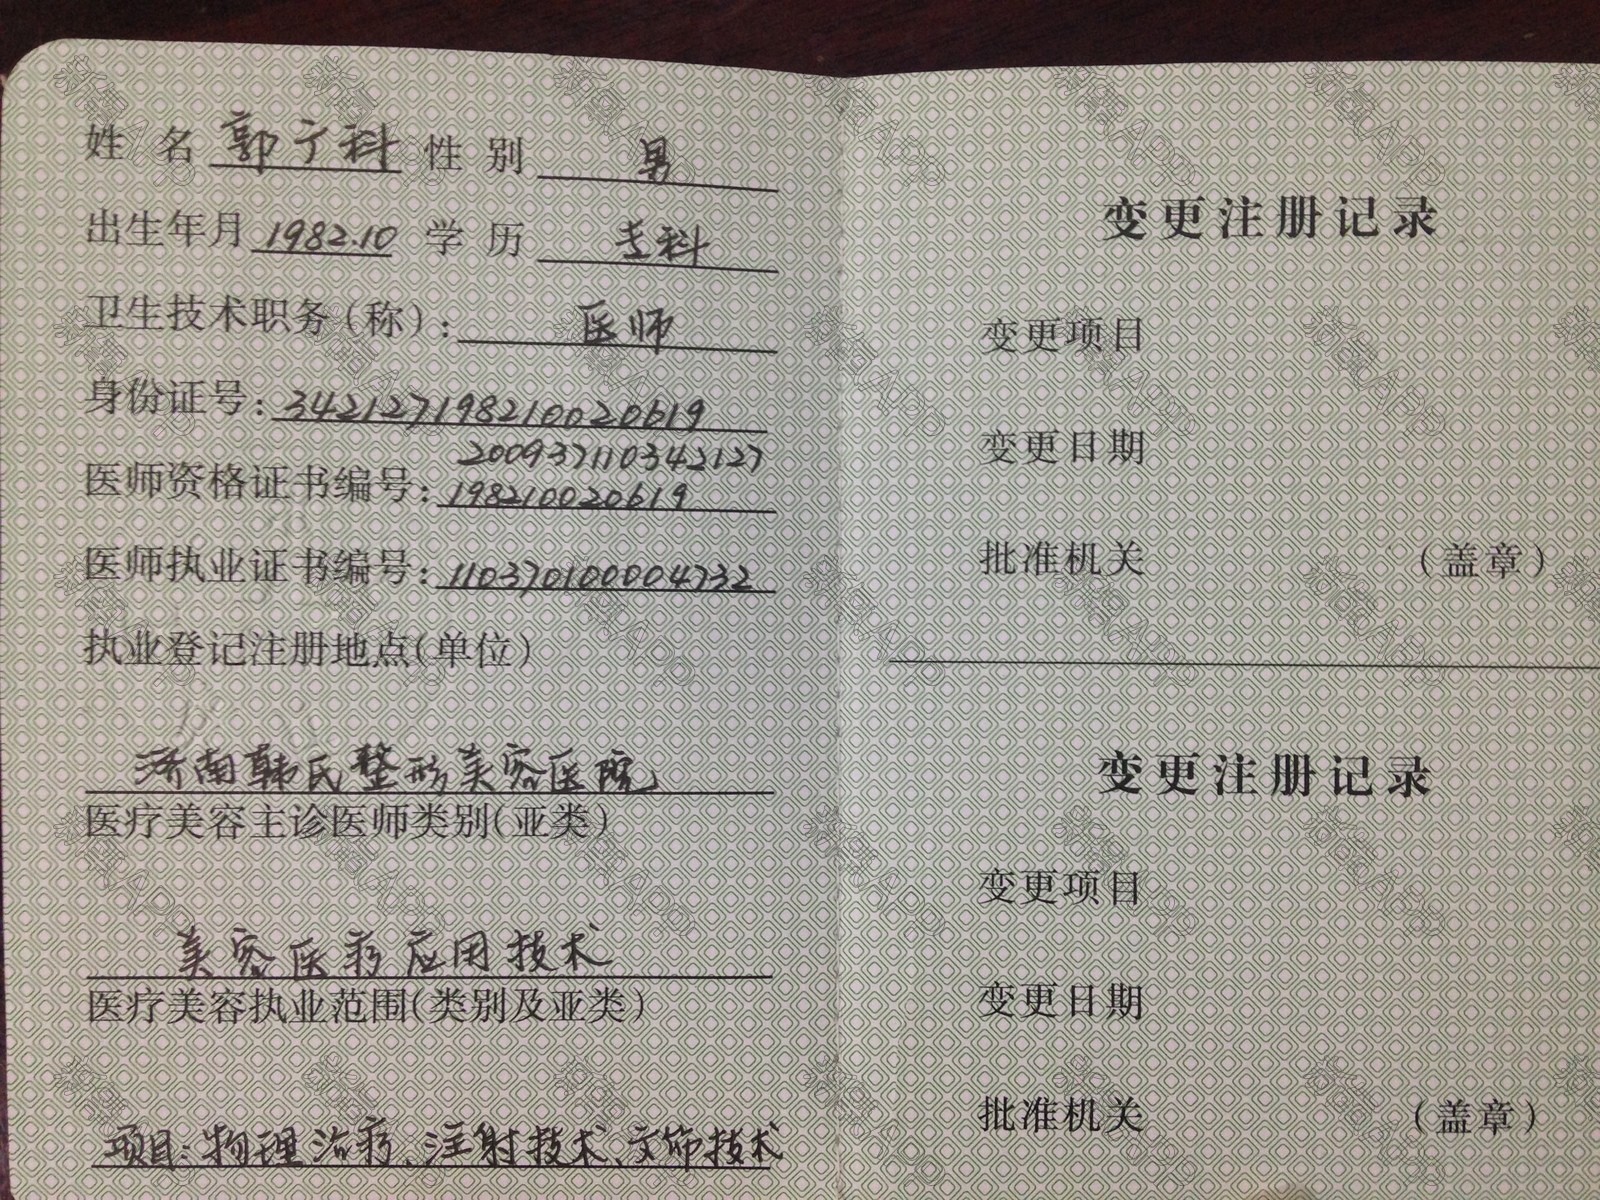 姓 名 郭宁科 性 别 男
出生年月 1982.10 学 历 专科
卫生技术职务(称): 医师
身份证号: 342127198210020619
200937110342127
医师资格证书编号: 198210020619
医师执业证书编号: 110370100004732
执业登记注册地点(单位)
济南韩氏整形美容医院
医疗美容主诊医师类别(亚类)
美容医疗应用技术
医疗美容执业范围(类别及亚类)
项目:物理治疗、注射技术、文饰技术
变更注册记录
变更项目
变更日期
批准机关 (盖章)
变更注册记录
变更项目
变更日期
批准机关 (盖章)